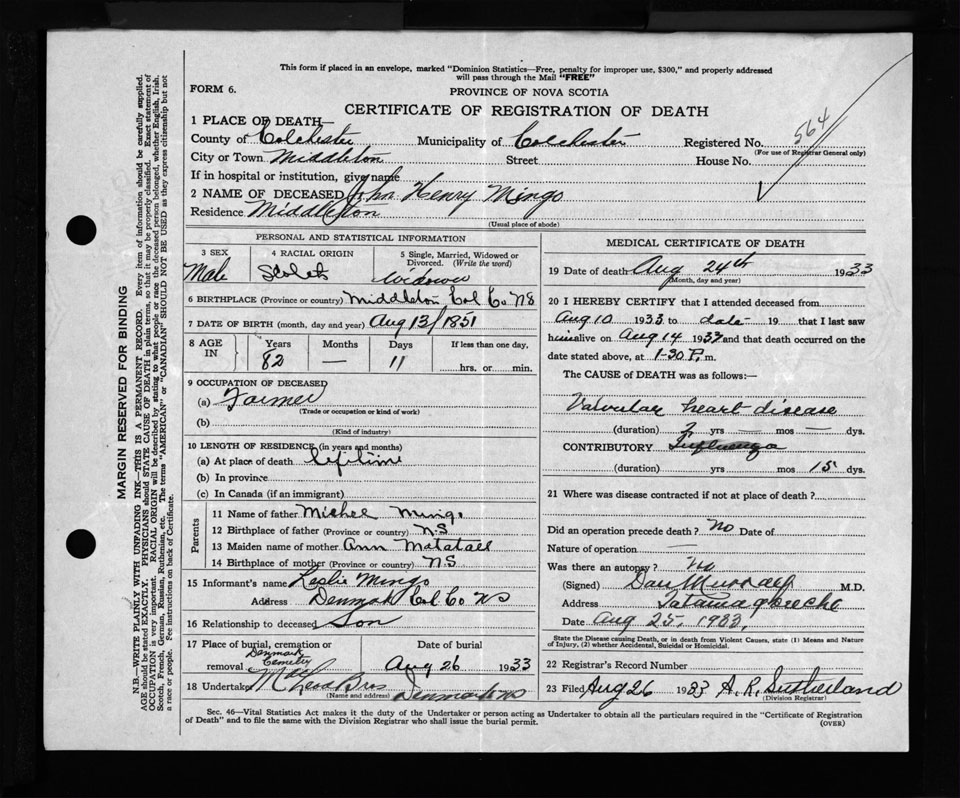 This form if placed in an envelope, marked "Dominion Statistics—Free, penalty for improper use, $300," and properly addressed
will pass through the Mail "FREE"
FORM 6.
PROVINCE OF NOVA SCOTIA
CERTIFICATE OF REGISTRATION OF DEATH
1 PLACE OF DEATH—
County of Colchester Municipality of Colchester Registered No. 564
(For use of Registrar General only)
City or Town Middleton Street House No.
If in hospital or institution, give name
2 NAME OF DECEASED John Henry Mingo
Residence Middleton
(Usual place of abode)
PERSONAL AND STATISTICAL INFORMATION
3 SEX 4 RACIAL ORIGIN 5 Single, Married, Widowed or
Divorced. (Write the word)
Male Scotch Widower
6 BIRTHPLACE (Province or country) Middleton Col Co NS
7 DATE OF BIRTH (month, day and year) Aug 13/1851
8 AGE IN Years Months Days If less than one day,
82 — 11 hrs. or min.
9 OCCUPATION OF DECEASED
(a) Farmer
(Trade or occupation or kind of work)
(b)
(Kind of industry)
10 LENGTH OF RESIDENCE (in years and months)
(a) At place of death Lifetime
(b) In province
(c) In Canada (if an immigrant)
Parents
11 Name of father Michel Mingo
12 Birthplace of father (Province or country) N.S
13 Maiden name of mother Ann Matatall
14 Birthplace of mother (Province or country) N S
15 Informant's name Leslie Mingo
Address Denmark Col Co NS
16 Relationship to deceased Son
17 Place of burial, cremation or Date of burial
removal Denmark Cemetery Aug 26 1933
18 Undertaker Bros Denmark NS
(Name and address)
MEDICAL CERTIFICATE OF DEATH
19 Date of death Aug 24th 1933
(Month, day and year)
20 I HEREBY CERTIFY that I attended deceased from
Aug 10 1933 to date 19 that I last saw
him alive on Aug 14 1933 and that death occurred on the
date stated above, at 1-30 P.m.
The CAUSE of DEATH was as follows:—
Valvular heart disease
(duration) 2 yrs — mos — dys.
CONTRIBUTORY Influenza
(duration) yrs mos 15 dys.
21 Where was disease contracted if not at place of death?
Did an operation precede death? No Date of
Nature of operation —
Was there an autopsy? No
(Signed) Dan M.D.
Address Tatamagouche
Date Aug 25, 1933
State the Disease causing Death, or in death from Violent Causes, state (1) Means and Nature
of Injury, (2) whether Accidental, Suicidal or Homicidal.
22 Registrar's Record Number
23 Filed Aug 26 1933 A. R. Sutherland
(Division Registrar)
Sec. 46—Vital Statistics Act makes it the duty of the Undertaker or person acting as Undertaker to obtain all the particulars required in the "Certificate of Registration
of Death" and to file the same with the Division Registrar who shall issue the burial permit.
(OVER)
MARGIN RESERVED FOR BINDING
N.B.—WRITE PLAINLY WITH UNFADING INK—THIS IS A PERMANENT RECORD. Every item of information should be carefully supplied.
AGE should be stated EXACTLY. PHYSICIANS should STATE CAUSE OF DEATH in plain terms, so that it may be properly classified. Exact statement of
OCCUPATION is very important. RACIAL ORIGIN will be described by stating to what people or race the deceased person belonged, whether English, Irish,
Scotch, French, German, Russian, Ruthenian, etc. The terms "AMERICAN" or "CANADIAN" SHOULD NOT BE USED as they express citizenship but not
a race or people. See instructions on back of Certificate.